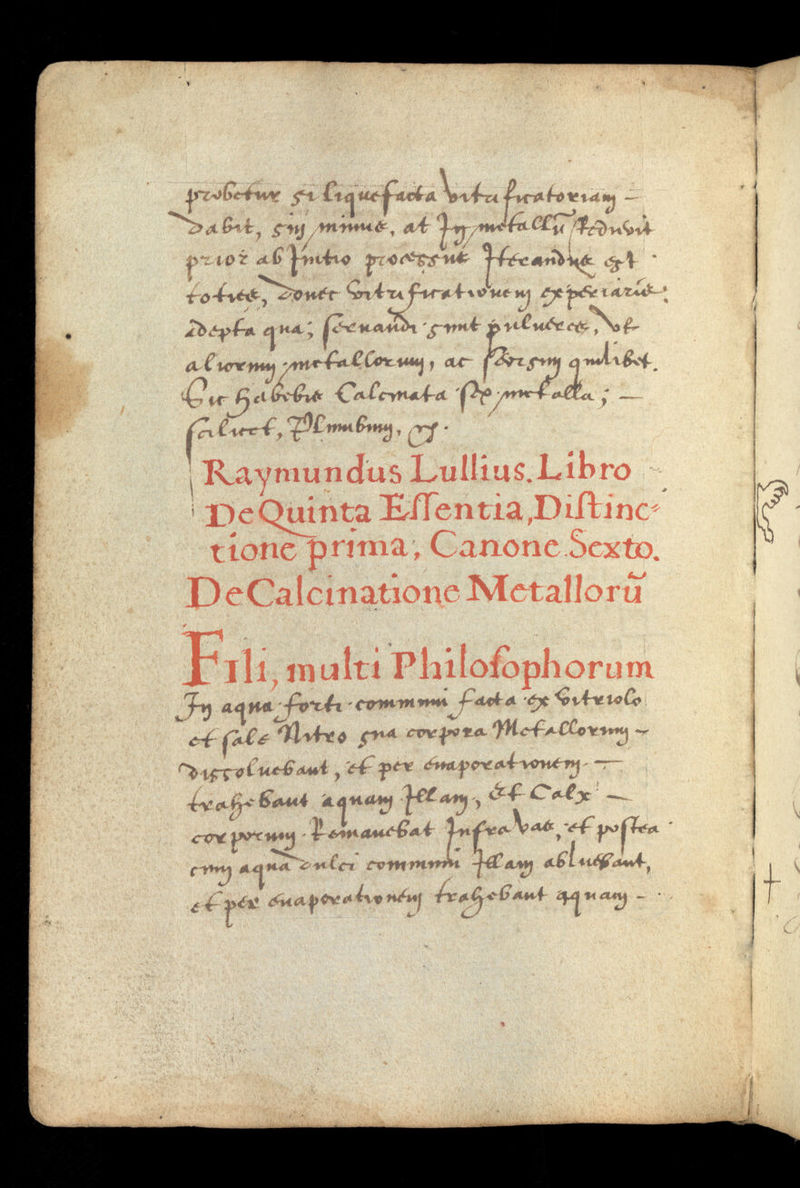 probetur si liquefacta vitrificatoriam –
dabit, sin minus, at In metallũ Reduvit
prior ab Initio processus Iterandus est
toties, donec vitrificationem experiaris:
adepta qua; servandi sunt pulveres, Vt
aliorum metallorum, ac seorsim quilibet.
Sic habebis Calcinata sex metalla; —
scilicet, Plumbum,
Raymundus Lullius. Libro
De Quinta Eſſentia, Diſtinc-
tione prima, Canone Sexto.
De Calcinatione Metallorũ
Fili, multi Philoſophorum
In aqua forti communi facta ex vitriolo
et sale Nitro sua corpora Metallorum –
dissoluebant, et per euaporationem —
trahebant aquam Illam, Et Calx —
corporum Remanebat Infra Vas, et postea
cum aqua dulci communi Illam abluebant,
et per euaporationem trahebant aquam –